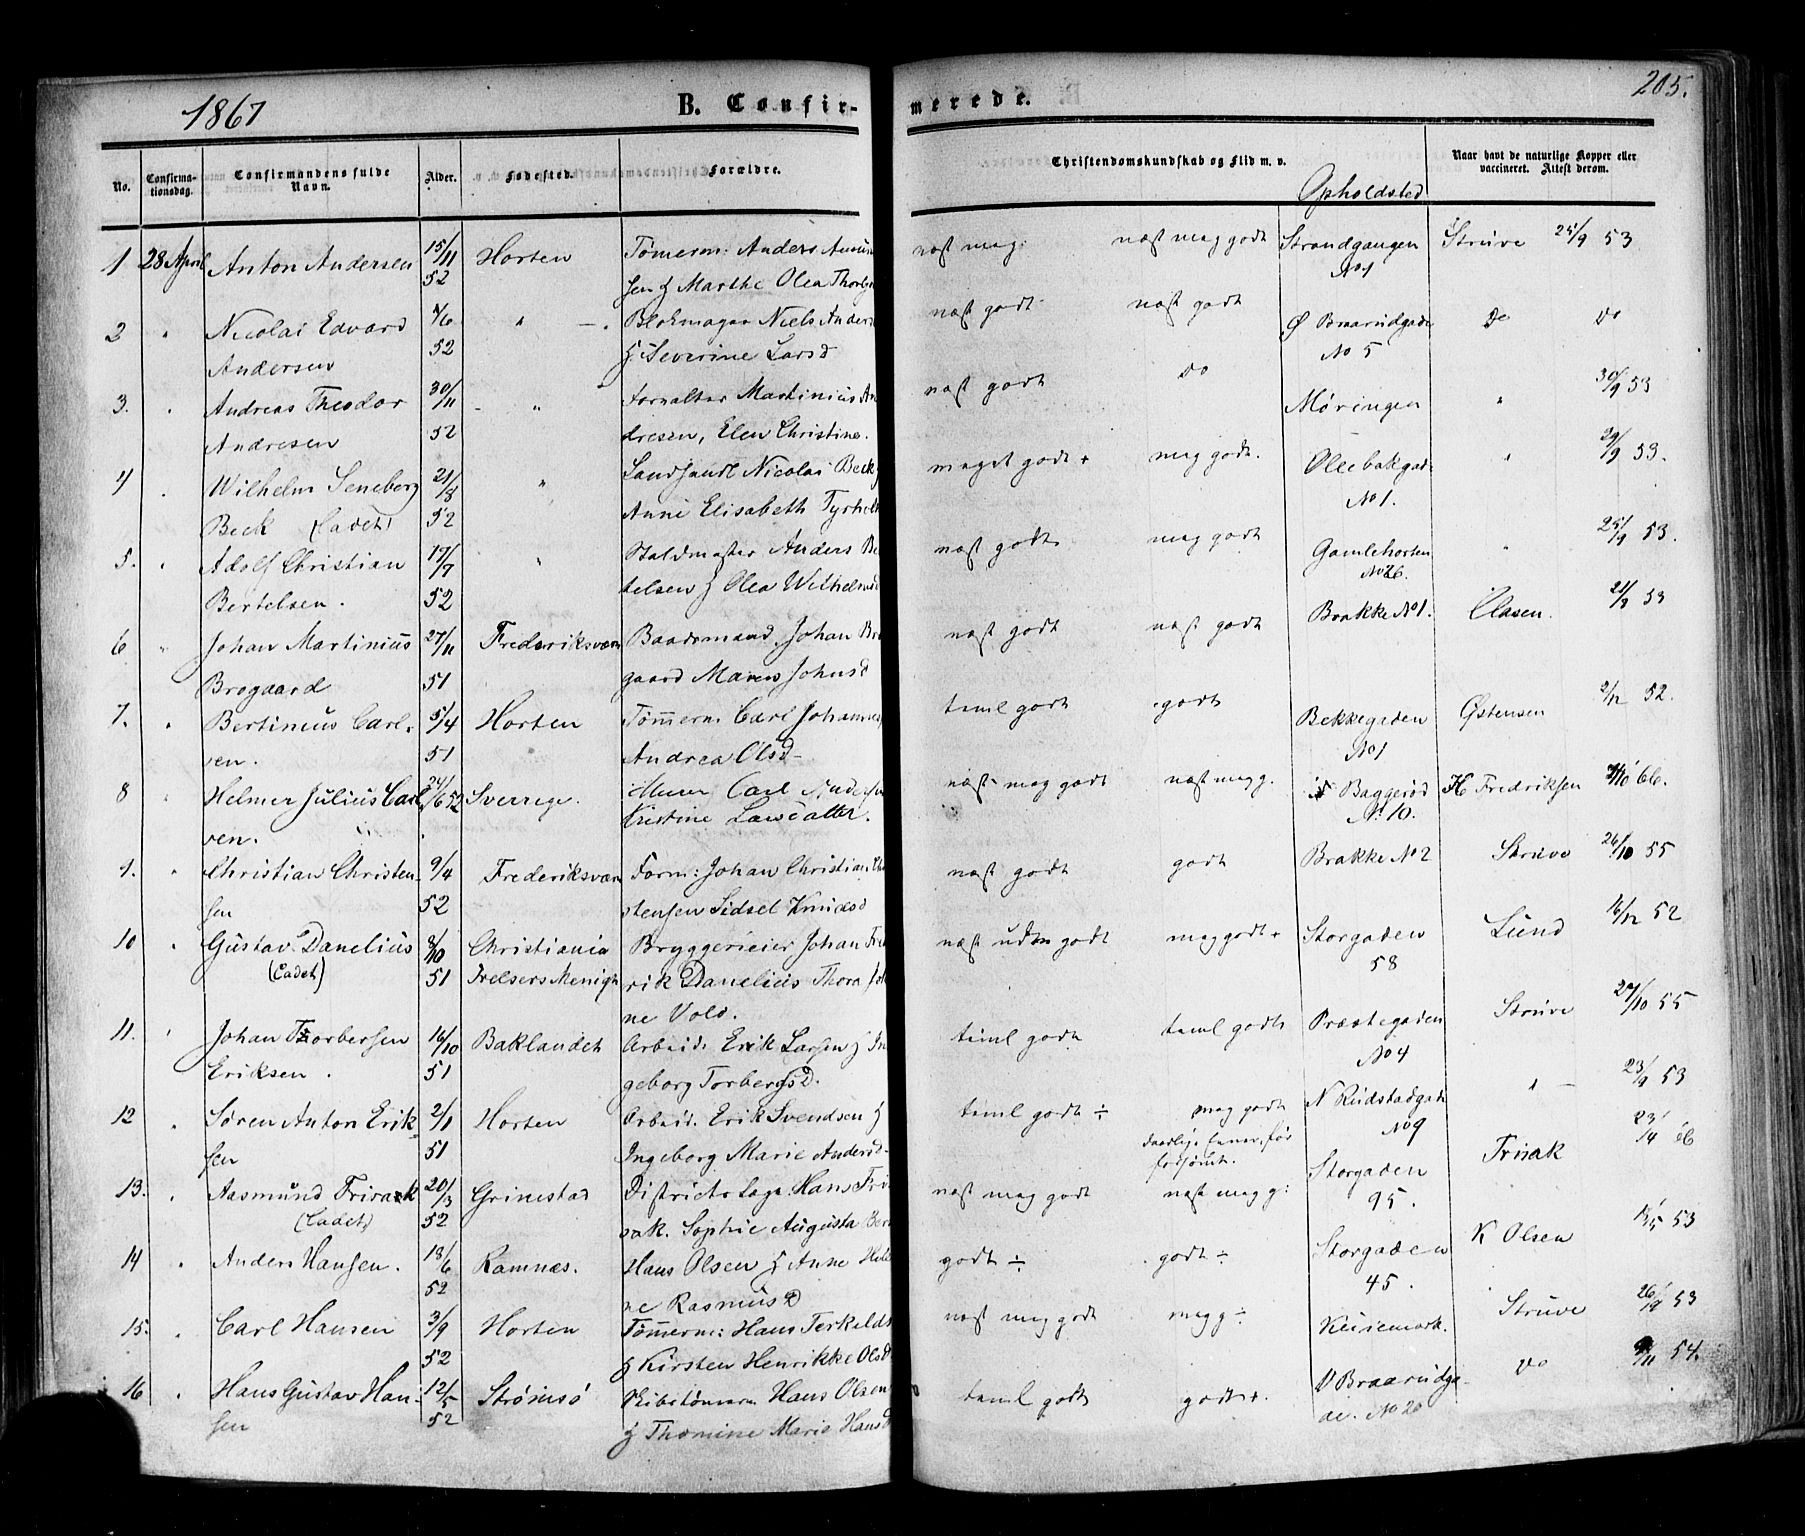 1867
B. Confir-
merede.
205.
No.
Confirma-
tionsdag.
Confirmandens fulde
Navn.
Alder.
Fødested.
Forældre.
Christendomskundskab og Flid m. v.
Opholdsted
Naar havt de naturlige Kopper eller
vaccineret. Attest derom.
1 28 April Anton Andersen 15/11 52 Horten Tømerm: Anders
sen & Marthe Olea
næst mag: næst mag godt Strandgangen No 1 Struve 25/9 53
2 " Nicolai Edvard
Andersen
52 " Blokmager Niels
& Severine Larsd
næst godt næst godt Ø Braarudgade No 5 do do
3. " Andreas Theodor
Andresen
30/11 52 " Martinius An
dresen, Elen Christine.
næst godt do Møringen " 30/9 53
4 " Wilhelm Seneberg
Beck (Cadet)
21/8 52 " Nicolai Beck &
Anne Elisabeth
meget godt + mag godt. No 1. " 29/9 53.
5. " Adolf Christian
Bertelsen.
17/7 52 " Anders Be
telsen & Olea Wilhelmsd
næst godt mag godt Gamlehorten No 26. " 25/9 53.
6 " Johan Martinius
Brogaard
27/11 51 Frederiksværn Baadsmand Johan Bro
gaard Maren Johnsd
næst godt næst godt Brakke No 1. Clasen. 53
7. " Bertinius Carl-
sen.
5/4 51 Horten Tømerm Carl Johannes
Andrea Olsd
taml godt godt Bekkegaden No 1 Østensen 2/12 52.
8 Helmer Julius Carl
sen.
24/6 52 Sverrige. Murer Carl Anders
Kristine Larsdatter.
næst mag godt næst mag g. Baggerød No. 10. H Fredriksen 66.
9. " Christian Christen-
sen
9/4 52 Frederiksværn Form: Johan Christian Chr
stensen Sidsel Knudsd
næst godt godt Brakke No 2 Struve 26/10 55
10 " Gustav Danelius
(Cadet)
8/10 51 Christiania
Frelsers Menigh
Bryggerieier Johan Fred
rik Danelius Thora
ne Vold.
næst udm godt mag godt + Storgaden 58 Lund 16/12 52
11. " Johan Torbersen
Eriksen.
16/10 51 Baklandet Arbeid. Erik Larsen & In
geborg Torbergsd.
taml godt taml godt Præstegaden No 4 Struve 27/10 55
12 " Søren Anton Erik-
sen
2/1 51 Horten Arbeid. Erik Svendsen &
Ingeborg Marie Andersd
taml godt ÷ mag godt
forsømt.
N Rudstadgade No 9 " 23/9 53
13. " Aasmund Frisak
(Cadet)
20/3 52 Grimstad Districtslæge Hans Fri
sak. Sophie Augusta
næst mag godt næst mag g: Storgaden 95. Frisak
14 " Anders Hansen. 18/6 52 Ramnæs. Hans Olsen & Anne
ne Rasmusd
godt ÷ godt ÷ Storgaden 45. K Olsen 53
15. " Carl Hansen 3/9 52 Horten Tømerm: Hans Terkelds
& Kirsten Henrikke Olsd
næst mag godt mag g ÷ Struve 26/9 53
16 " Hans Gustav Han-
sen
12/5 52 Strømsø Hans Olsen
& Thomine Marie Hansd
taml godt godt +. V Braarudga
de. No 20 do 54.